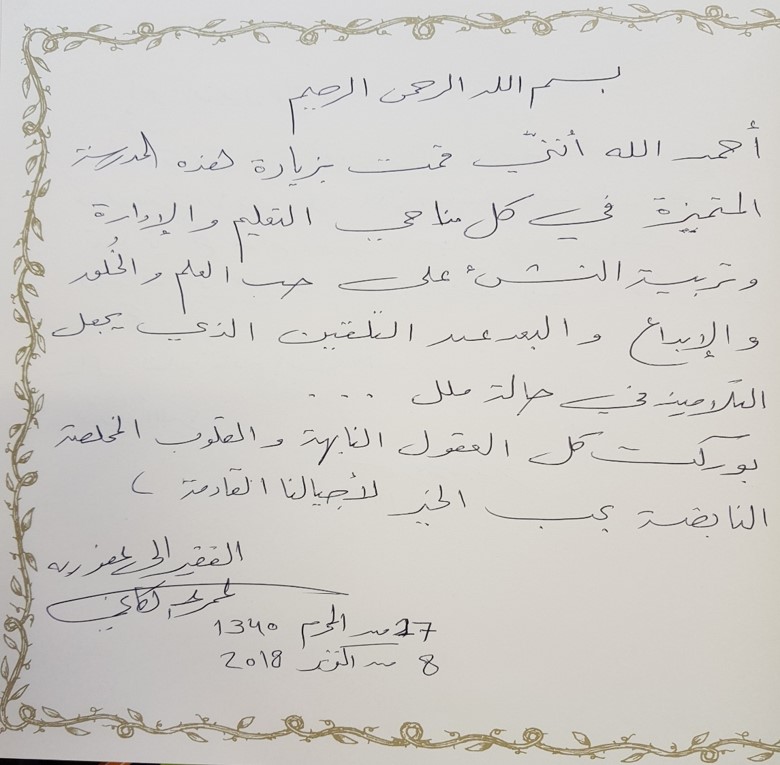 بسم الله الرحمن الرحيم
أحمد الله أنني قمت بزيارة هذه المدرسة
المتميزة في كل مناحي التعليم والإدارة
وتربية النشئ على حب العلم والخُلق
والإبداع والبعد عن التلقين الذي يجعل
التلاميذ في حالة ملل ...
بوركت كل العقول النابهة والقلوب المخلصة
النابضة بحب الخير لأجيالنا القادمة
الفقير إلى عفو ربه
27 من المحرم 1340
8 من أكتوبر 2018